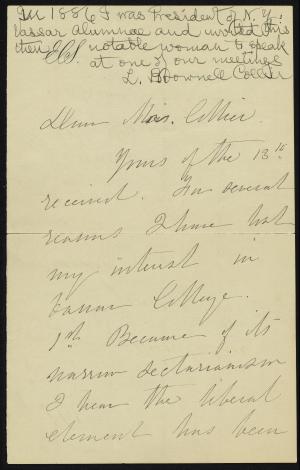 In 1886 I was President of N.Y.
Vassar Alumnae and invited this
then ECS. notable woman to speak
at one of our meetings
L. Brownell Collier
Dear Mrs. Collier.
Yours of the 13th
received. For several
reasons I have lost
my interest in
Vassar College.
1st Because of its
narrow sectarianism
I hear the liberal
element has been